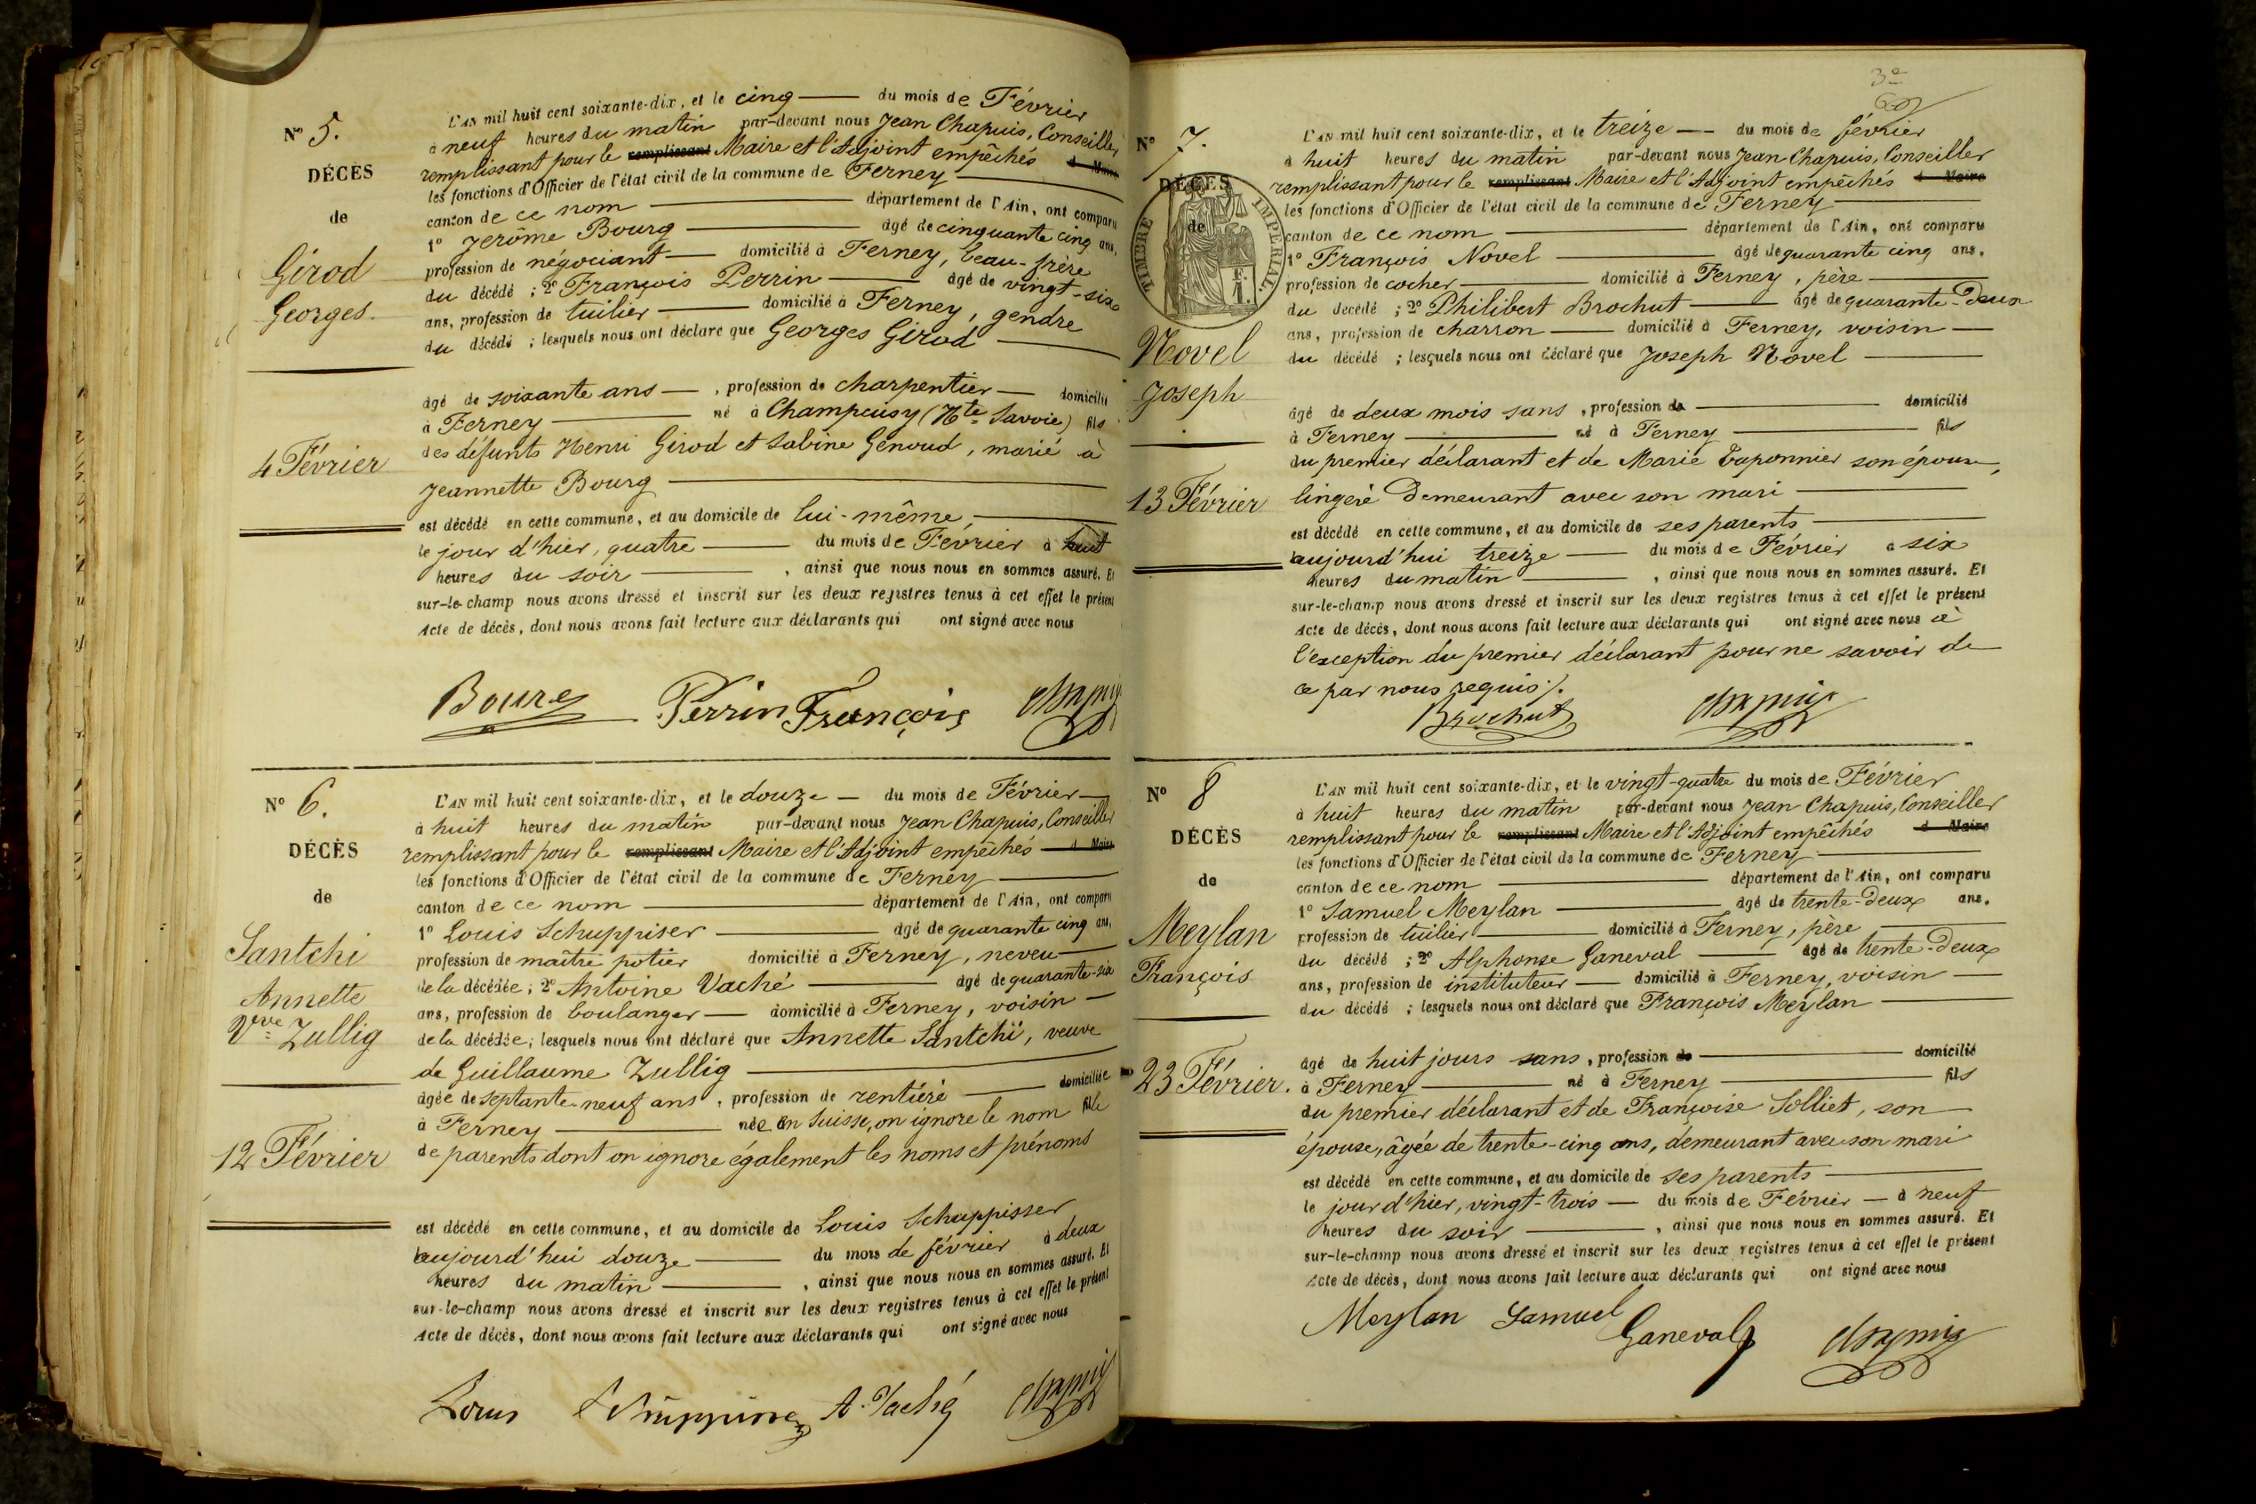 N° 5.
DÉCÈS
de
Girod
Georges.
4 Février
L'AN mil huit cent soixante-dix, et le cinq du mois de Février
à neuf heures du matin par-devant nous Jean Chapuis, Conseiller
remplissant pour le remplissant Maire et l'Adjoint empêchés
les fonctions d'Officier de l'état civil de la commune de Ferney
canton de ce nom département de l'Ain, ont comparu
1° Jerôme Bourg âgé de cinquante cinq ans,
profession de négociant domicilié à Ferney, beau-frère
du décédé ; 2° François Perrin âgé de vingt-six
ans, profession de tuilier domicilié à Ferney, gendre
du décédé ; lesquels nous ont déclaré que Georges Girod
âgé de soixante ans, profession de charpentier domicilié
à Ferney né à (Hte Savoie) fils
des défunts Henri Girod et Sabine Genoud, marié à
Jeannette Bourg
est décédé en cette commune, et au domicile de lui-même,
le jour d'hier, quatre du mois de Février à huit
heures du soir, ainsi que nous nous en sommes assuré. Et
sur-le-champ nous avons dressé et inscrit sur les deux registres tenus à cet effet le présent
Acte de décès, dont nous avons fait lecture aux déclarants qui ont signé avec nous
Bourg Perrin François Chapuis
N° 6.
DÉCÈS
de
Santchi
Annette
Vve Zullig
12 Février
L'AN mil huit cent soixante-dix, et le douze du mois de Février
à huit heures du matin par-devant nous Jean Chapuis, Conseiller
remplissant pour le remplissant Maire et l'Adjoint empêchés d Maire
les fonctions d'Officier de l'état civil de la commune de Ferney
canton de ce nom département de l'Ain, ont comparu
1° Louis Schuppiser âgé de quarante cinq ans,
profession de maître potier domicilié à Ferney, neveu
de la décédée ; 2° Antoine Vaché âgé de quarante-six
ans, profession de boulanger domicilié à Ferney, voisin
de la décédée ; lesquels nous ont déclaré que Annette Santchi, veuve
de Guillaume Zullig
âgée de septante-neuf ans, profession de rentière domiciliée
à Ferney née en Suisse, on ignore le nom fille
de parents dont on ignore également les noms et prénoms
est décédé en cette commune, et au domicile de Louis Schuppisser
aujourd'hui douze du mois de février à deux
heures du matin, ainsi que nous nous en sommes assuré. Et
sur-le-champ nous avons dressé et inscrit sur les deux registres tenus à cet effet le présent
Acte de décès, dont nous avons fait lecture aux déclarants qui ont signé avec nous
Louis Schuppisser A. Vaché Chapuis
3e
N° 7.
DÉCÈS
de
TIMBRE IMPÉRIAL
Novel
Joseph
13 Février
L'AN mil huit cent soixante-dix, et le treize du mois de février
à huit heures du matin par-devant nous Jean Chapuis, Conseiller
remplissant pour le remplissant Maire et l'Adjoint empêchés d Maire
les fonctions d'Officier de l'état civil de la commune de Ferney
canton de ce nom département de l'Ain, ont comparu
1° François Novel âgé de quarante cinq ans,
profession de cocher domicilié à Ferney, père
du décédé ; 2° Philibert Brochut âgé de quarante-deux
ans, profession de charron domicilié à Ferney, voisin
du décédé ; lesquels nous ont déclaré que Joseph Novel
âgé de deux mois sans, profession de domicilié
à Ferney né à Ferney fils
du premier déclarant et de Marie Taponnier son épouse,
lingère demeurant avec son mari
est décédé en cette commune, et au domicile de ses parents
aujourd'hui treize du mois de Février à six
heures du matin, ainsi que nous nous en sommes assuré. Et
sur-le-champ nous avons dressé et inscrit sur les deux registres tenus à cet effet le présent
Acte de décès, dont nous avons fait lecture aux déclarants qui ont signé avec nous à
l'exception du premier déclarant pour ne savoir de
ce par nous requis /.
Brochut Chapuis
N° 8
DÉCÈS
de
Meylan
François
23 Février.
L'AN mil huit cent soixante-dix, et le vingt-quatre du mois de Février
à huit heures du matin par-devant nous Jean Chapuis, Conseiller
remplissant pour le remplissant Maire et l'Adjoint empêchés d Maire
les fonctions d'Officier de l'état civil de la commune de Ferney
canton de ce nom département de l'Ain, ont comparu
1° Samuel Meylan âgé de trente-deux ans,
profession de tuilier domicilié à Ferney, père
du décédé ; 2° Alphonse Ganeval âgé de trente-deux
ans, profession de instituteur domicilié à Ferney, voisin
du décédé ; lesquels nous ont déclaré que François Meylan
âgé de huit jours sans, profession de domicilié
à Ferney né à Ferney fils
du premier déclarant et de Françoise Solliet, son
épouse, âgée de trente-cinq ans, demeurant avec son mari
est décédé en cette commune, et au domicile de ses parents
le jour d'hier, vingt-trois du mois de Février à neuf
heures du soir, ainsi que nous nous en sommes assuré. Et
sur-le-champ nous avons dressé et inscrit sur les deux registres tenus à cet effet le présent
Acte de décès, dont nous avons fait lecture aux déclarants qui ont signé avec nous
Meylan Samuel Ganeval Chapuis